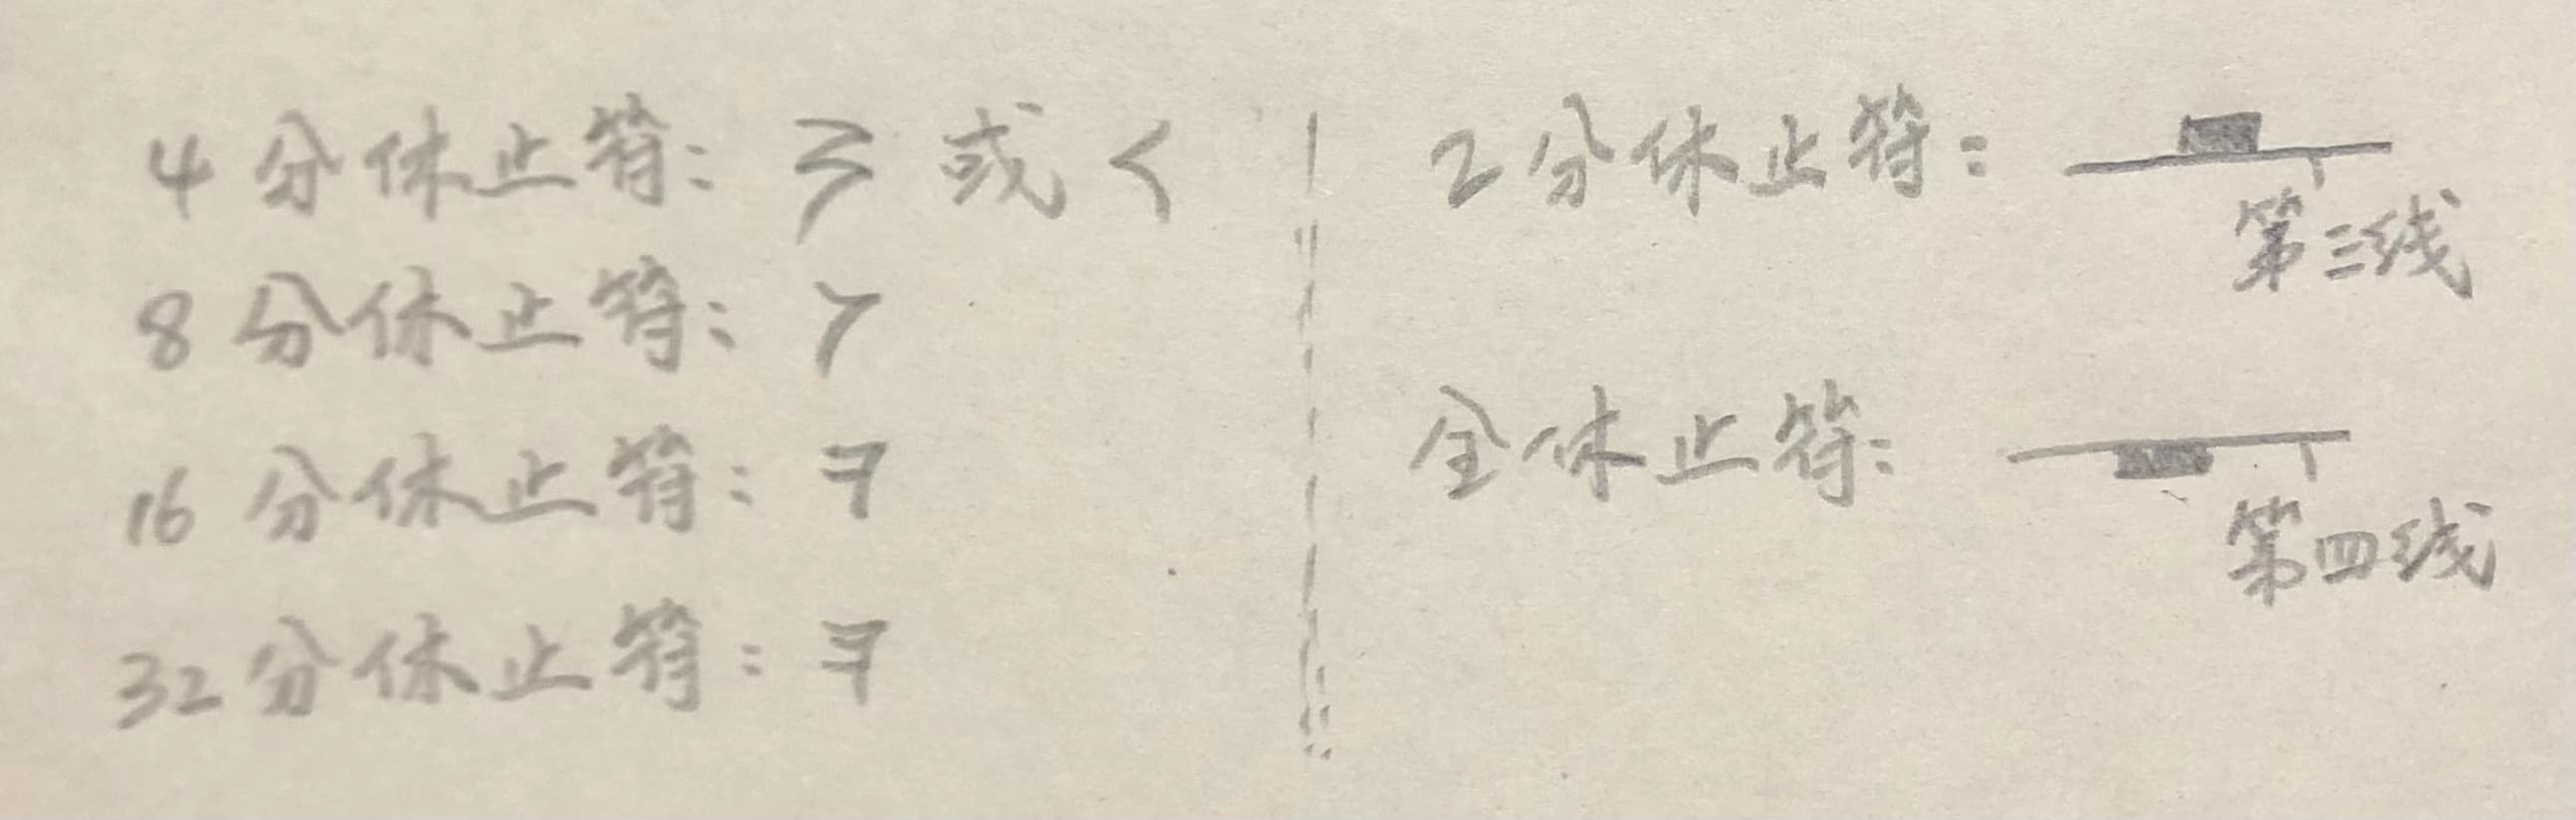 4分休止符: 或
8分休止符:
16分休止符:
32分休止符:
2分休止符:
第三线
全休止符:
第四线